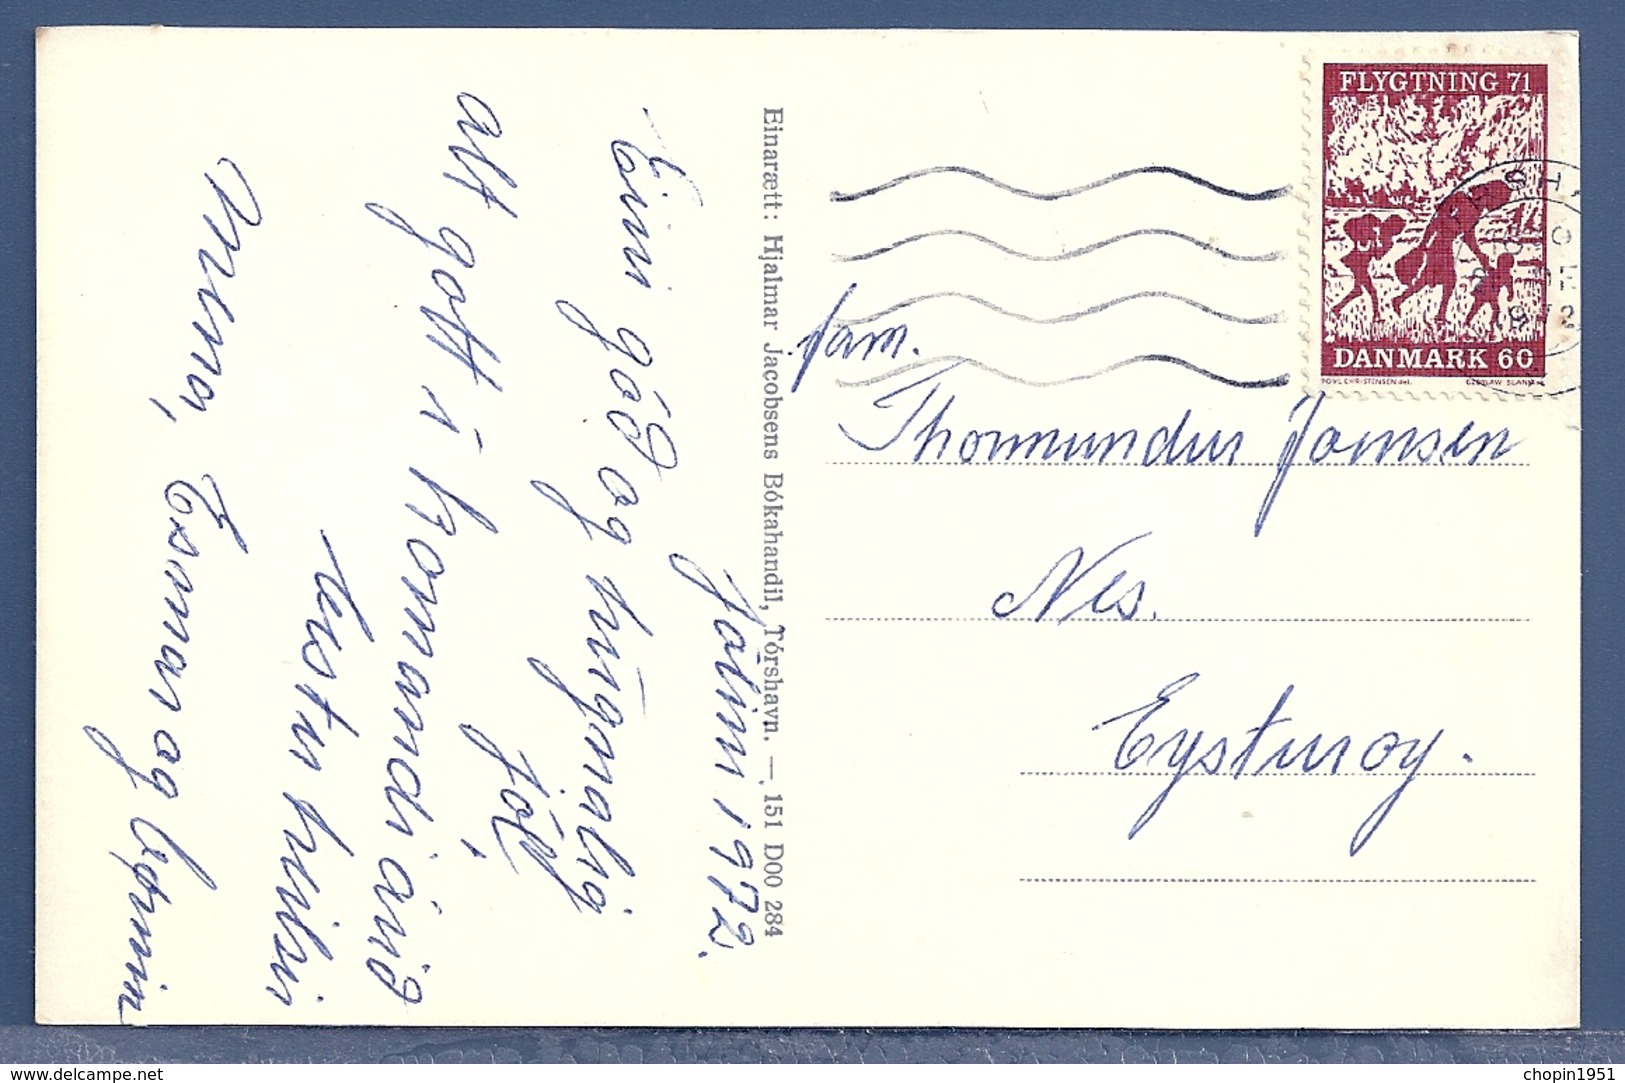 Jólini 1972.
Eini góð og hugnalig
jól
alt gott í komandi árið
Einarætt: Hjalmar Jacobsens Bókahandil, Tórshavn. —, 151 D00 284
FLYGTNING 71
DANMARK 60
POVL CHRISTENSEN del. CZESLAW SLANIA
1972
fam.
Thormundur Joensen
Nes.
Eysturoy.
delcampe.net
chopin1951